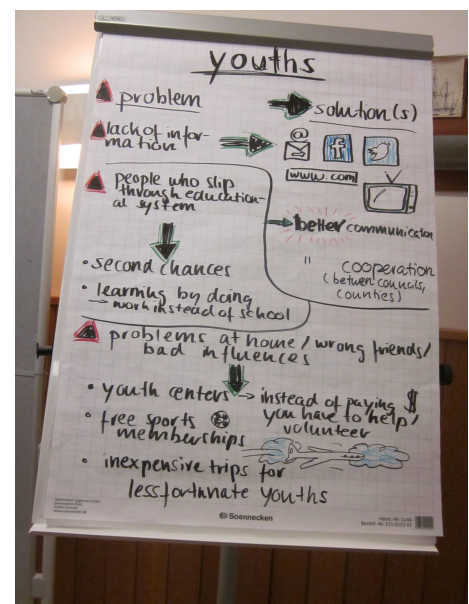 youths
problem
solution(s)
lack of infor-
mation
@
f
www.com
people who slip
through education-
al system
better communication
" cooperation
(between councils,
counties)
• second chances
• learning by doing
→ work instead of school
problems at home / wrong friends/
bad influences
• youth centers → instead of paying $
you have to help/
volunteer
• free sports
memberships
• inexpensive trips for
less fortunate youths
Soennecken